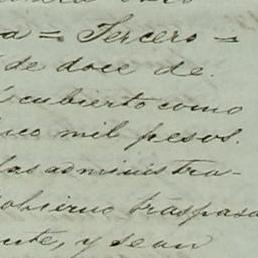 a = Tercero =
de doce de
scubierto como
nco mil pesos.
las administra-
obierno traspasa
nte, y sean